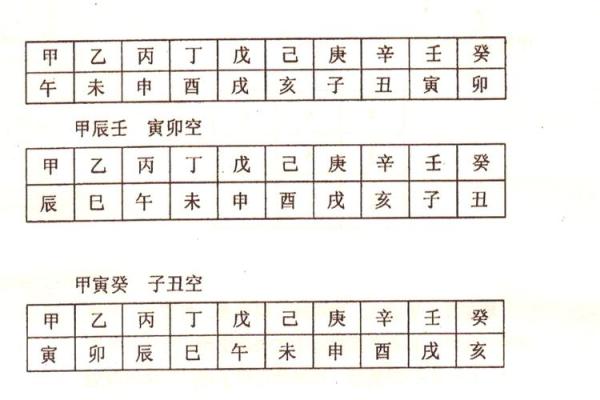 甲 乙 丙 丁 戊 己 庚 辛 壬 癸
午 未 申 酉 戌 亥 子 丑 寅 卯
甲辰壬 寅卯空
甲 乙 丙 丁 戊 己 庚 辛 壬 癸
辰 巳 午 未 申 酉 戌 亥 子 丑
甲寅癸 子丑空
甲 乙 丙 丁 戊 己 庚 辛 壬 癸
寅 卯 辰 巳 午 未 申 酉 戌 亥